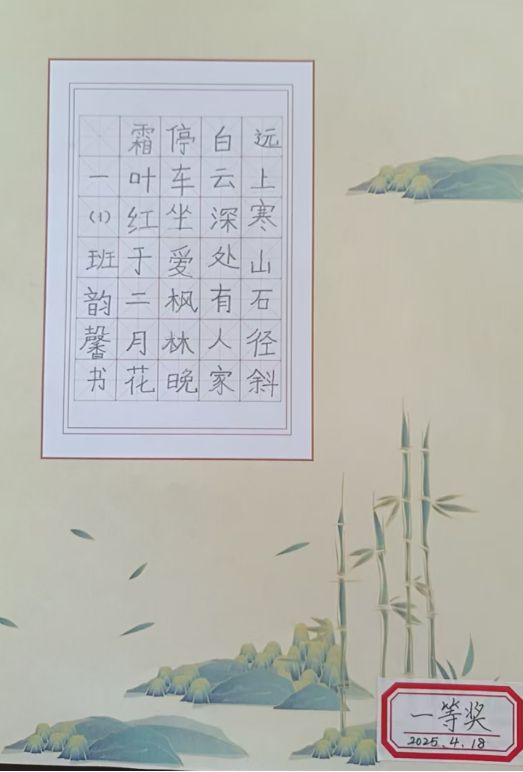 远上寒山石径斜
白云深处有人家
停车坐爱枫林晚
霜叶红于二月花
一(1)班韵馨书
一等奖
2025.4.18